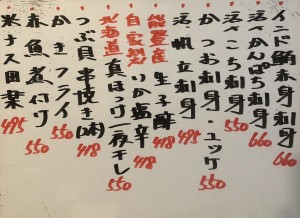 インド鮪赤身刺身 660
活かんぱち刺身 660
活こち刺身 550
かつお刺身・ユッケ 550
活帆立刺身 495
能登産生子酢 418
自家製いか塩辛 418
北海道真ほっけ一夜干し 550
つぶ貝串焼き(2本) 418
かきフライ 550
赤魚煮付 550
米ナス田楽 495